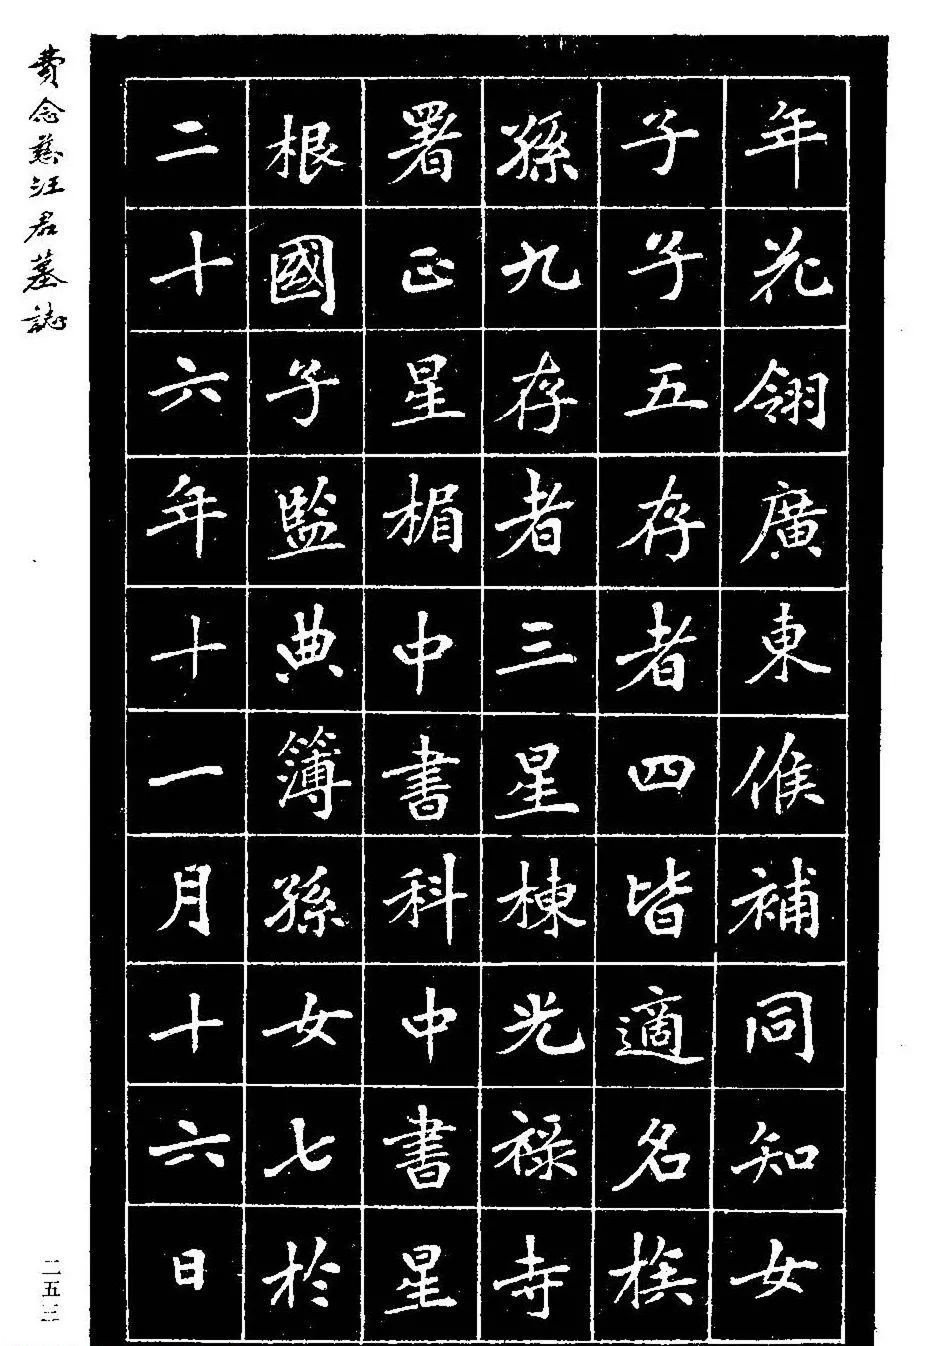 年花翎廣東候補同知女
子子五存者四皆適名族
孫九存者三星棟光祿寺
署正星楣中書科中書星
根國子監典簿孫女七於
二十六年十一月十六日
費念慈汪君墓誌
二五三